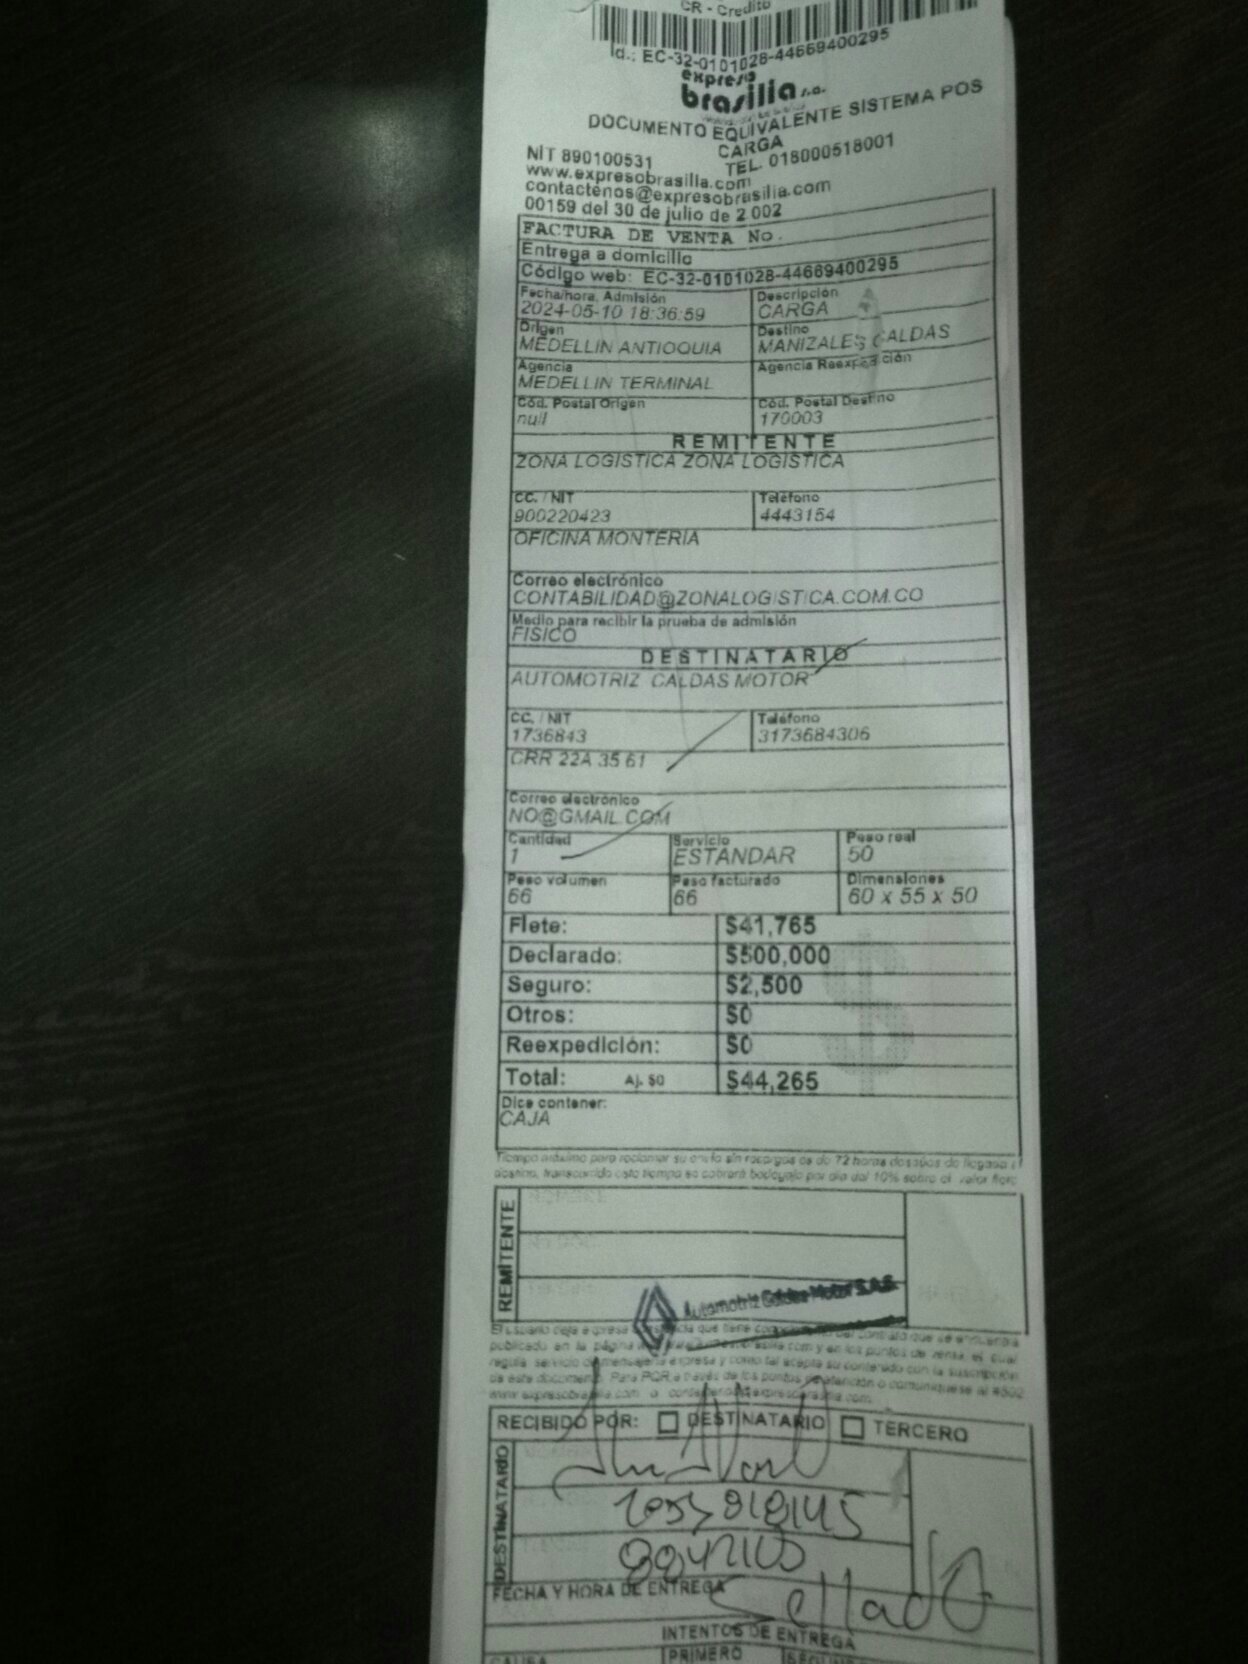 CR - Credito
Id.: EC-32-0101028-44669400295
expreso
brasilia s.a.
DOCUMENTO EQUIVALENTE SISTEMA POS
CARGA
NIT 890100531 TEL. 018000518001
www.expresobrasilia.com
contactenos@expresobrasilia.com
00159 del 30 de julio de 2 002
FACTURA DE VENTA No.
Entrega a domicilio
Código web: EC-32-0101028-44669400295
Fecha/hora, Admisión Descripción
2024-05-10 18:36:59 CARGA
Origen Destino
MEDELLIN ANTIOQUIA MANIZALES CALDAS
Agencia Agencia Reexpedición
MEDELLIN TERMINAL
Cód. Postal Origen Cód. Postal Destino
null 170003
REMITENTE
ZONA LOGISTICA ZONA LOGISTICA
CC. / NIT Teléfono
900220423 4443154
OFICINA MONTERIA
Correo electrónico
CONTABILIDAD@ZONALOGISTICA.COM.CO
Medio para recibir la prueba de admisión
FISICO
DESTINATARIO
AUTOMOTRIZ CALDAS MOTOR
CC. / NIT Teléfono
1736843 3173684306
CRR 22A 35 61
Correo electrónico
NO@GMAIL.COM
Cantidad Servicio Peso real
1 ESTANDAR 50
Peso volumen Peso facturado Dimensiones
66 66 60 x 55 x 50
Flete: $41,765
Declarado: $500,000
Seguro: $2,500
Otros: $0
Reexpedición: $0
Total: Aj. $0 $44,265
Dice contener:
CAJA
Tiempo máximo para reclamar su envío sin recargos es de 72 horas después de llegada al
destino, transcurrido este tiempo se cobrará bodegaje por día del 10% sobre el valor flete
REMITENTE
Automotriz Caldas Motor S.A.S.
El usuario deja expresa que tiene del contrato que se encuentra
publicado en la página y en los puntos de venta, el cual
regula servicio de mensajería expresa y como tal acepta su contenido con la suscripción
de este documento. Para PQR a través de los puntos de atención o comuníquese al
www.expresobrasilia.com o contactenos@expresobrasilia.com.
RECIBIDO POR: DESTINATARIO TERCERO
DESTINATARIO
FECHA Y HORA DE ENTREGA
Sellado
INTENTOS DE ENTREGA
CAUSA PRIMERO